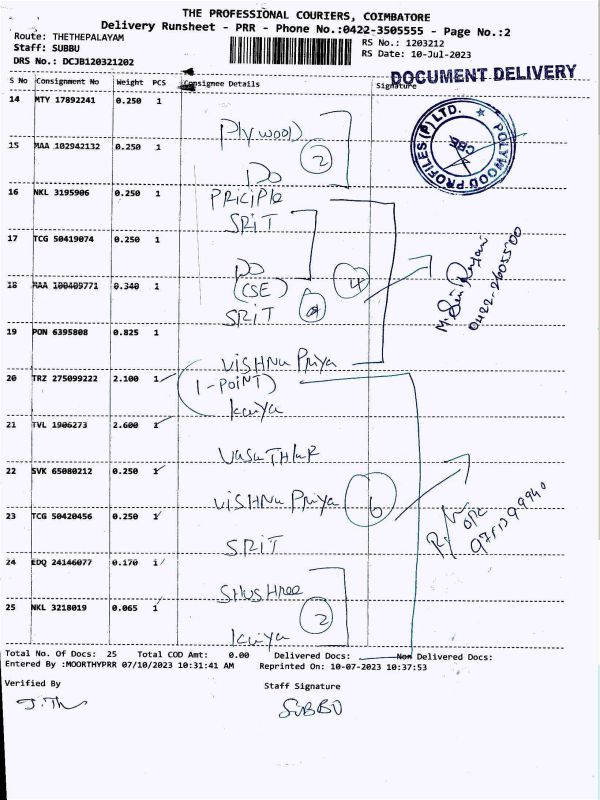 THE PROFESSIONAL COURIERS, COIMBATORE
Delivery Runsheet - PRR - Phone No.:0422-3505555 - Page No.:2
Route: THETHEPALAYAM
Staff: SUBBU
RS No.: 1203212
DRS No.: DCJB120321202
RS Date: 10-Jul-2023
DOCUMENT DELIVERY
S No Consignment No Weight PCS Consignee Details Signature
14 MTY 17892241 0.250 1 Plywood
15 MAA 102942132 0.250 1 Do
2
POLYWOOD PROFILES (P) LTD. ★
CBE
16 NKL 3195906 0.250 1 PRICIPle SRIT
17 TCG 50419074 0.250 1 Do
18 MAA 100409771 0.340 1 (CSE) SRIT
4
0422-2605500
19 PON 6395808 0.825 1 VISHNU PRIYA
20 TRZ 275099222 2.100 1 (1-POINT) Kariya
21 TVL 1906273 2.600 1
22 SVK 65080212 0.250 1 VISHNU PRIYA
6
23 TCG 50420456 0.250 1 SRIT
24 EDQ 24146077 0.170 1 SHUSHREE
25 NKL 3218019 0.065 1 Kariya
2
Total No. Of Docs: 25 Total COD Amt: 0.00 Delivered Docs: Non Delivered Docs:
Entered By :MOORTHYPRR 07/10/2023 10:31:41 AM Reprinted On: 10-07-2023 10:37:53
Verified By Staff Signature
SUBBU